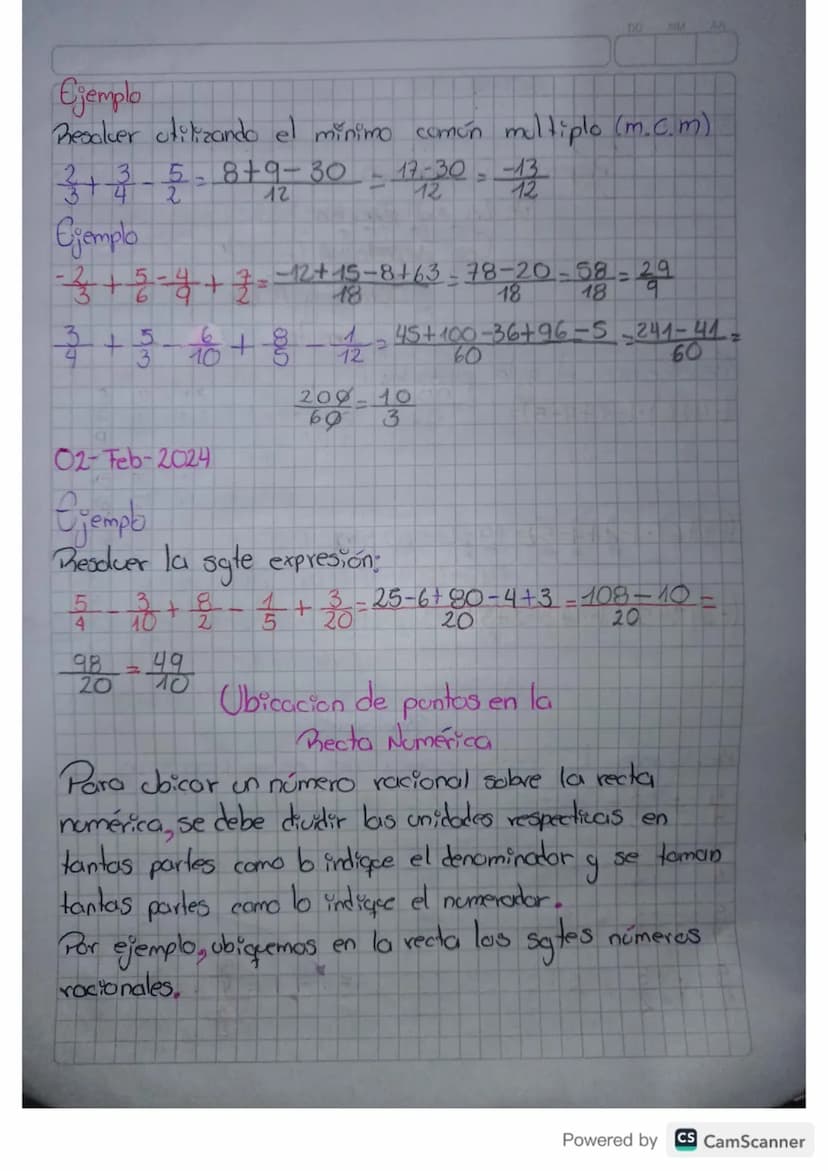 DD MM AA
Ejemplo
Resolver utilizando el mínimo común multiplo (m.c.m)
2/3 + 3/4 - 5/2 = 8+9-30/12 = 17-30/12 = -13/12
Ejemplo
-2/3 + 5/6 - 4/9 + 7/2 = -12+15-8+63/18 = 78-20/18 = 58/18 = 29/9
3/4 + 5/3 - 6/10 + 8/5 - 1/12 = 45+100-36+96-5/60 = 241-41/60 =
200/60 = 10/3
02-Feb-2024
Ejemplo
Resolver la sgte expresión:
5/4 - 3/10 + 8/2 - 1/5 + 3/20 = 25-6+80-4+3/20 = 108-10/20 =
98/20 = 49/10
Ubicacion de puntos en la
Recta Numérica
Para ubicar un número racional sobre la recta
numérica, se debe dividir las unidades respectivas en
tantas partes como lo indique el denominador y se toman
tantas partes como lo indique el numerador.
Por ejemplo, ubiquemos en la recta los sgtes números
racionales.
Powered by CS CamScanner